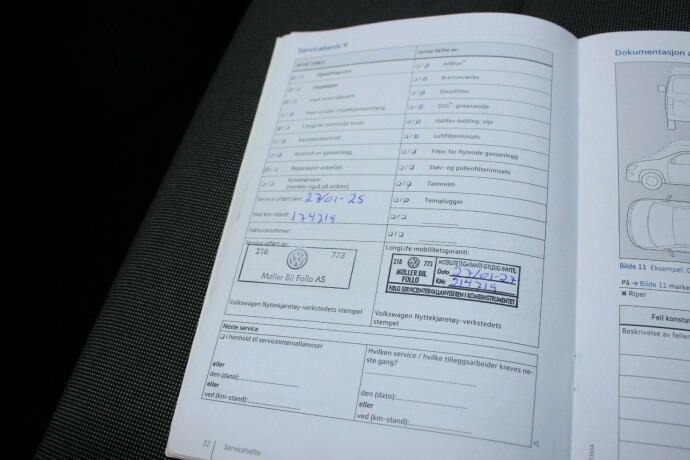 Servicebevis 9
Ja/nei Utført:
Oljeskiftservice
Inspeksjon
med motoroljeskift
med utvidet inspeksjonsomfang
LongLife motorolje brukt
Karosserikontroll
Kontroll av gassanlegg
Reparasjon anbefalt
Kundeønsker
(merkes også på ordren)
Service utført den: 27/01-25
Ved km-stand: 174719
Fakturanummer:
Service utført av:
218 773
Møller Bil Follo AS
Volkswagen Nyttekjøretøy-verkstedets
stempel
Ja/nei Skifte av:
AdBlue®
Bremsevæske
Dieselfilter
DSG®-girkasseolje
Haldex-kobling: olje
Luftfilterinnsats
Filter for flytende gassanlegg
Støv- og pollenfilterinnsats
Tannreim
Tennplugger
LongLife mobilitetsgaranti:
218 773
MØLLER BIL
FOLLO
MOBILITETSGARANTI GYLDIG INNTIL:
Dato 27/01-27
KM: 214719
FØLG SERVICEINTERVALLANVISEREN I KOMBIINSTRUMENTET
Volkswagen Nyttekjøretøy-verkstedets
stempel
Neste service
i henhold til serviceintervallanviser
eller
den (dato):
eller
ved (km-stand):
Hvilken service / hvilke tilleggsarbeider kreves ne-
ste gang?
den (dato):
eller
ved (km-stand):
22 Servicehefte
Dokumentasjon
Bilde 11 Eksempel:
På → Bilde 11 marke
✖ Riper
Feil konstat
Beskrivelse av feilen